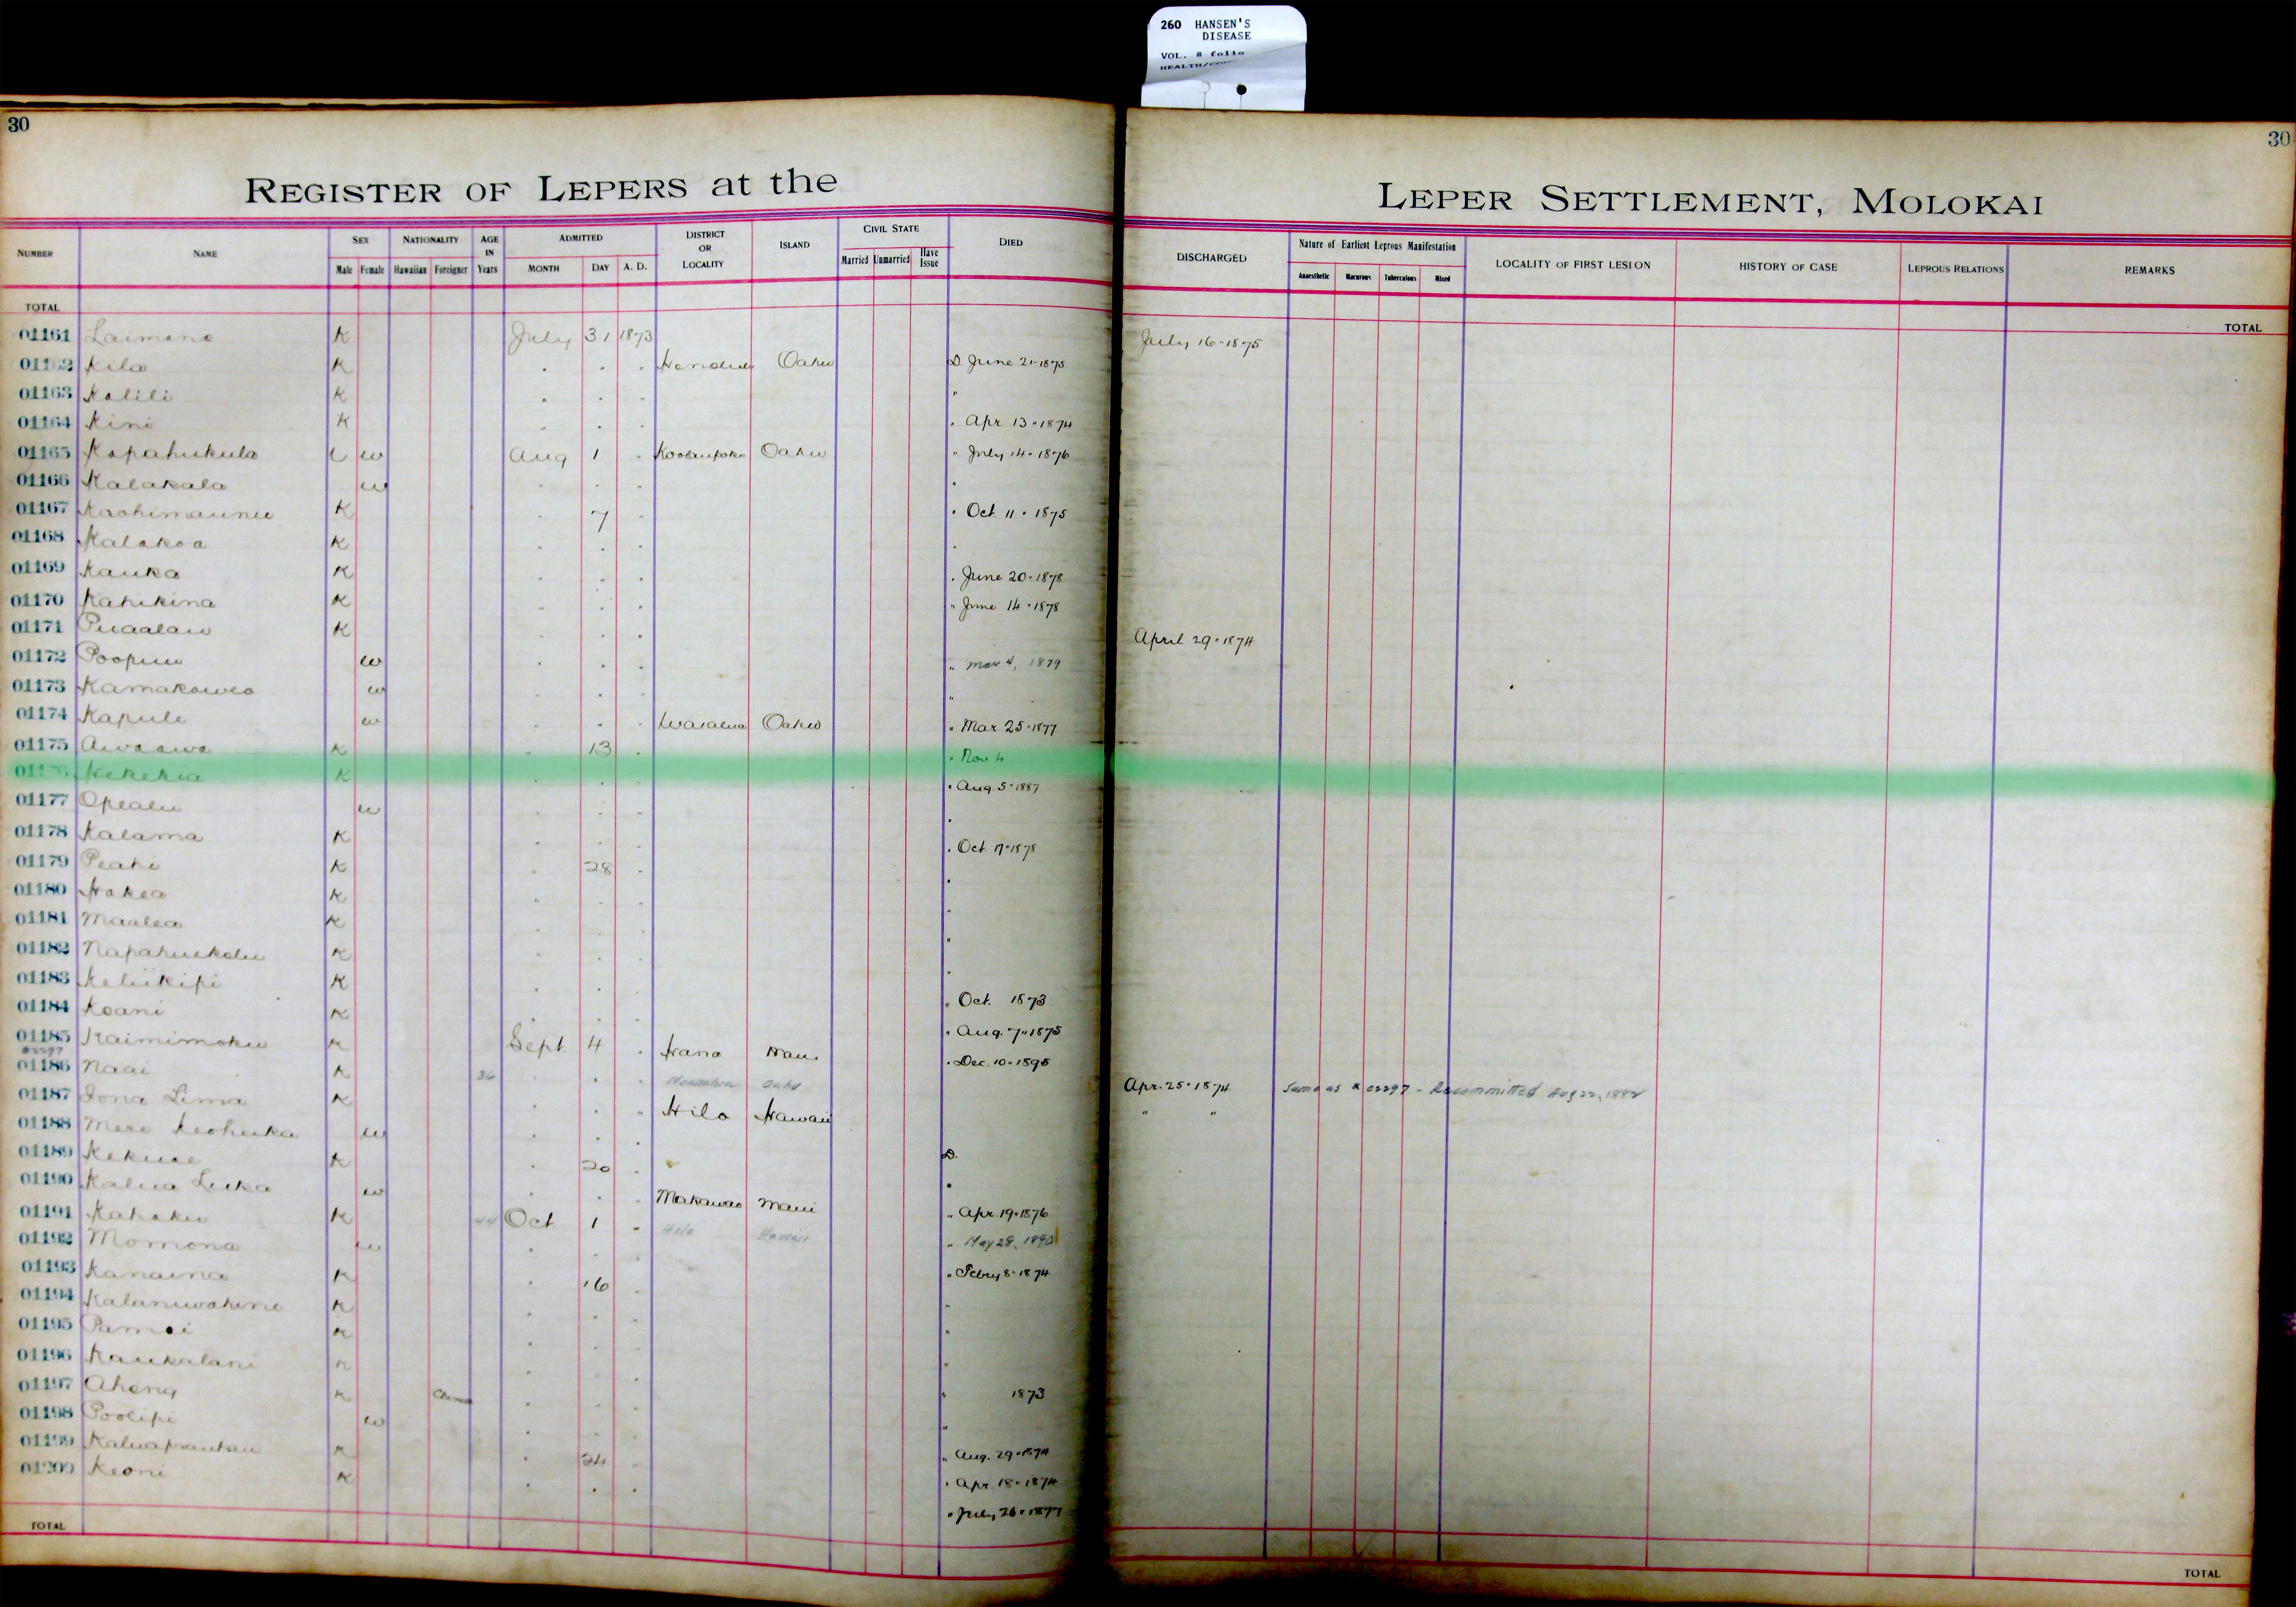 260 HANSEN'S
DISEASE
VOL. 8 folio
30
30
REGISTER OF LEPERS at the
LEPER SETTLEMENT, MOLOKAI
NUMBER NAME SEX Male Female NATIONALITY Hawaiian Foreigner AGE IN Years ADMITTED MONTH DAY A. D. DISTRICT OR LOCALITY ISLAND CIVIL STATE Married Unmarried Have Issue DIED DISCHARGED Nature of Earliest Leprous Manifestation Anaesthetic Macurous Tuberculous Mixed LOCALITY OF FIRST LESION HISTORY OF CASE LEPROUS RELATIONS REMARKS
TOTAL TOTAL
01161 Laimana K July 31 1873 July 16-1875
01162 Kila K . . . Honolulu Oahu D. June 21-1875
01163 Kalili K . . . "
01164 Kini K . . . . Apr 13-1874
01165 Kapahukula w Aug 1 . Koolaupoko Oahu " July 14-1876
01166 Kalakala w . . . .
01167 Kaohimaunu K . 7 . . Oct 11-1875
01168 Kalakoa K . . . .
01169 Kauka K . . . . June 20-1878
01170 Kahikina K . . . " June 14-1878
01171 Puaalau K . . . April 29-1874
01172 w . . . " Mar 4, 1879
01173 Kamakawea w . . . "
01174 Kapule w . . . Waialua Oahu " Mar 25-1877
01175 Awaawa K . 13 . " Nov 4
Kekekia K . . . . Aug 5-1887
01177 Opealu w . . . .
01178 Kalama K . . . . Oct 17-1878
01179 Peahi K . 28 . .
01180 Hakea K . . . "
01181 Maalea K . . . "
01182 Napahuekolu K . . . "
01183 Keliikipi K . . . " Oct. 1873
01184 Koani K . . . " Aug. 7-1875
01185 Kaimimoku K Sept 4 . Hana Maui . Dec. 10-1895
01186 Naai K 36 . . . Oahu Apr. 25-1874 Same as # 02297 - Recommitted Aug 22, 1882
01187 Iona Lima K . . . Hilo Hawaii " "
01188 Mere Keohuka w . . . D.
01189 Kekuae K . 20 . .
01190 Kalua Luka w . . . Makawao Maui " Apr 19-1876
01191 Kahaku K 44 Oct 1 . Hilo Hawaii " May 28, 1890
01192 Momona w . . . " Febry 8-1874
01193 Kanaina K . 16 . "
01194 Kalaniwahine K . . . "
01195 K . . . "
01196 Kaukalani K . . . "
01197 Aheng K . . . " 1873
01198 Poolipi w . . . "
01199 K . 24 . " Aug. 29-1874
01200 Keoni K . . . . Apr 18-1874
. July 26-1877
TOTAL TOTAL